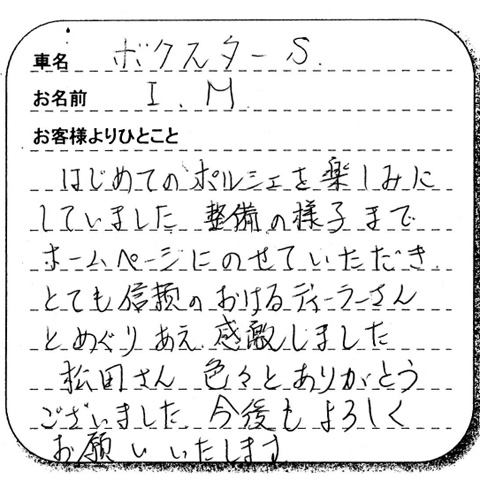 車名 ボクスターS.
お名前 I.M
お客様よりひとこと
はじめてのポルシェを楽しみに
していました 整備の様子まで
ホームページにのせていただき
とても信頼のおけるディーラーさん
とめぐりあえ 感敵しました
松田さん 色々とありがとう
ございました 今後もよろしく
お願いいたします